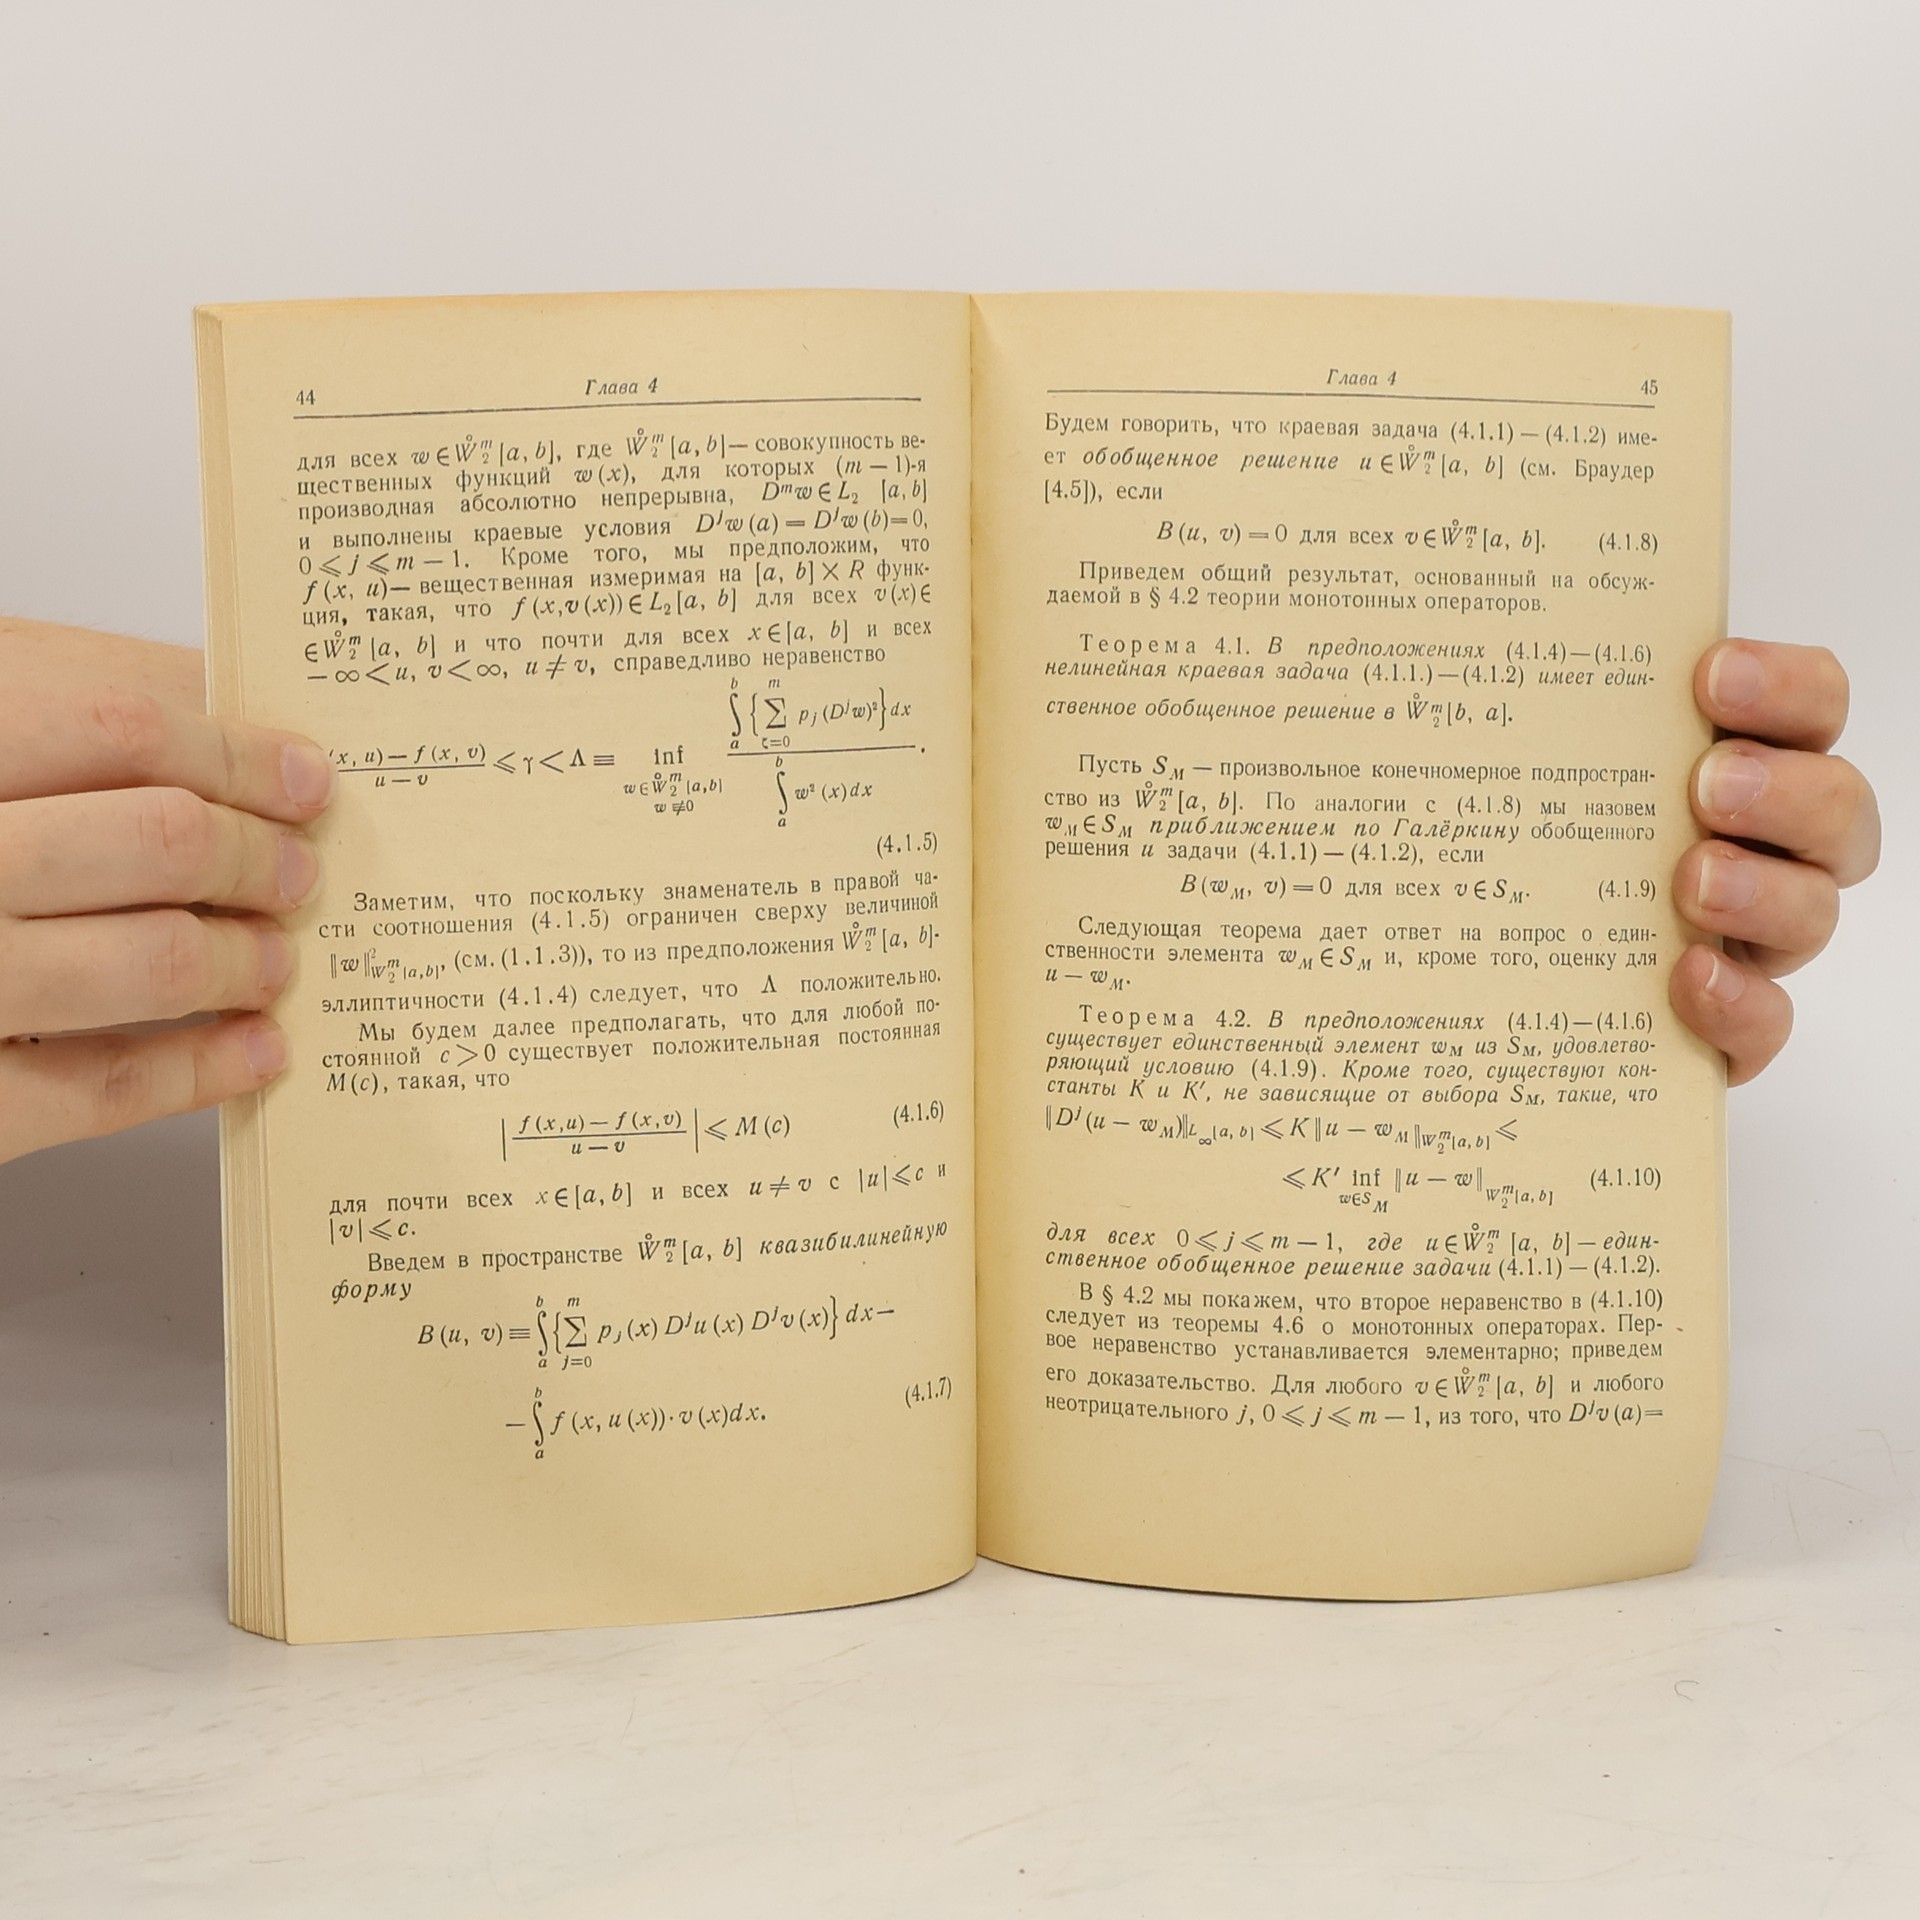 44
Глава 4
для всех w ∈ W̊₂ᵐ [a, b], где W̊₂ᵐ [a, b] — совокупность ве-
щественных функций w (x), для которых (m — 1)-я
производная абсолютно непрерывна, Dᵐw ∈ L₂ [a, b]
и выполнены краевые условия Dʲw (a) = Dʲw (b) = 0,
0 ⩽ j ⩽ m — 1. Кроме того, мы предположим, что
f (x, u) — вещественная измеримая на [a, b] × R функ-
ция, такая, что f (x, v (x)) ∈ L₂ [a, b] для всех v (x) ∈
∈ W̊₂ᵐ [a, b] и что почти для всех x ∈ [a, b] и всех
— ∞ < u, v < ∞, u ≠ v, справедливо неравенство
(x, u) — f (x, v) / u — v ⩽ γ < Λ ≡ inf w ∈ W̊₂ᵐ [a,b] w ≢ 0 ∫ₐᵇ { ∑ ζ=0 m pⱼ (Dʲw)² } dx / ∫ₐᵇ w² (x) dx .
(4.1.5)
Заметим, что поскольку знаменатель в правой ча-
сти соотношения (4.1.5) ограничен сверху величиной
‖w‖² W₂ᵐ [a,b], (см. (1.1.3)), то из предположения W̊₂ᵐ [a, b]-
эллиптичности (4.1.4) следует, что Λ положительно.
Мы будем далее предполагать, что для любой по-
стоянной c > 0 существует положительная постоянная
M (c), такая, что
| f (x,u) — f (x,v) / u — v | ⩽ M (c) (4.1.6)
для почти всех x ∈ [a, b] и всех u ≠ v с |u| ⩽ c и
|v| ⩽ c.
Введем в пространстве W̊₂ᵐ [a, b] квазибилинейную
форму
B (u, v) ≡ ∫ₐᵇ { ∑ j=0 m pⱼ (x) Dʲu (x) Dʲv (x) } dx —
— ∫ₐᵇ f (x, u (x)) · v (x) dx. (4.1.7)
Глава 4
45
Будем говорить, что краевая задача (4.1.1) — (4.1.2) име-
ет обобщенное решение u ∈ W̊₂ᵐ [a, b] (см. Браудер
[4.5]), если
B (u, v) = 0 для всех v ∈ W̊₂ᵐ [a, b]. (4.1.8)
Приведем общий результат, основанный на обсуж-
даемой в § 4.2 теории монотонных операторов.
Теорема 4.1. В предположениях (4.1.4) — (4.1.6)
нелинейная краевая задача (4.1.1.) — (4.1.2) имеет един-
ственное обобщенное решение в W̊₂ᵐ [b, a].
Пусть S_M — произвольное конечномерное подпростран-
ство из W̊₂ᵐ [a, b]. По аналогии с (4.1.8) мы назовем
w_M ∈ S_M приближением по Галёркину обобщенного
решения u задачи (4.1.1) — (4.1.2), если
B (w_M, v) = 0 для всех v ∈ S_M. (4.1.9)
Следующая теорема дает ответ на вопрос о един-
ственности элемента w_M ∈ S_M и, кроме того, оценку для
u — w_M.
Теорема 4.2. В предположениях (4.1.4) — (4.1.6)
существует единственный элемент w_M из S_M, удовлетво-
ряющий условию (4.1.9). Кроме того, существуют кон-
станты K и K′, не зависящие от выбора S_M, такие, что
‖Dʲ (u — w_M)‖ L_∞ [a, b] ⩽ K ‖u — w_M‖ W₂ᵐ [a, b] ⩽
⩽ K′ inf w∈S_M ‖u — w‖ W₂ᵐ [a, b] (4.1.10)
для всех 0 ⩽ j ⩽ m — 1, где u ∈ W̊₂ᵐ [a, b] — един-
ственное обобщенное решение задачи (4.1.1) — (4.1.2).
В § 4.2 мы покажем, что второе неравенство в (4.1.10)
следует из теоремы 4.6 о монотонных операторах. Пер-
вое неравенство устанавливается элементарно; приведем
его доказательство. Для любого v ∈ W̊₂ᵐ [a, b] и любого
неотрицательного j, 0 ⩽ j ⩽ m — 1, из того, что Dʲv (a) =